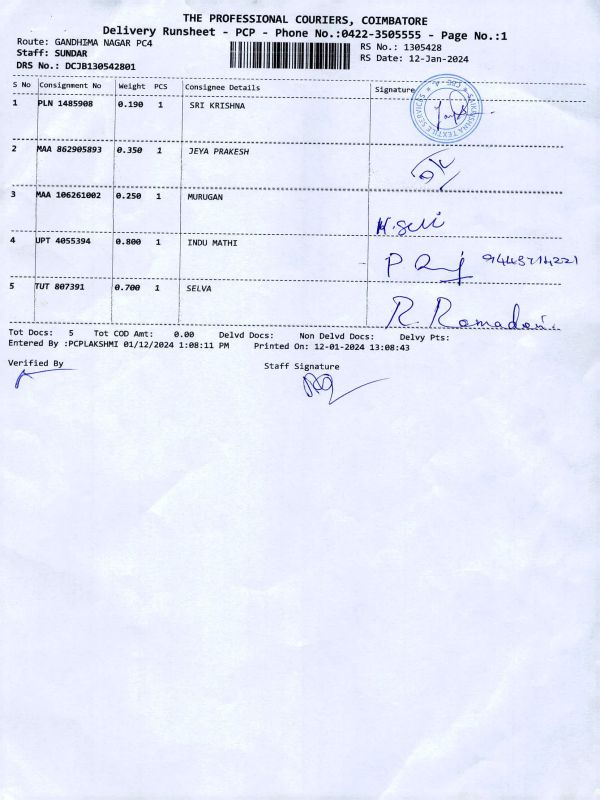 THE PROFESSIONAL COURIERS, COIMBATORE
Delivery Runsheet - PCP - Phone No.:0422-3505555 - Page No.:1
Route: GANDHIMA NAGAR PC4
Staff: SUNDAR
DRS No.: DCJB130542801
RS No.: 1305428
RS Date: 12-Jan-2024
S No Consignment No Weight PCS Consignee Details Signature
1 PLN 1485908 0.190 1 SRI KRISHNA
2 MAA 862905893 0.350 1 JEYA PRAKESH
3 MAA 106261002 0.250 1 MURUGAN
4 UPT 4055394 0.800 1 INDU MATHI
5 TUT 807391 0.700 1 SELVA
Tot Docs: 5 Tot COD Amt: 0.00 Delvd Docs: Non Delvd Docs: Delvy Pts:
Entered By :PCPLAKSHMI 01/12/2024 1:08:11 PM Printed On: 12-01-2024 13:08:43
Verified By
Staff Signature